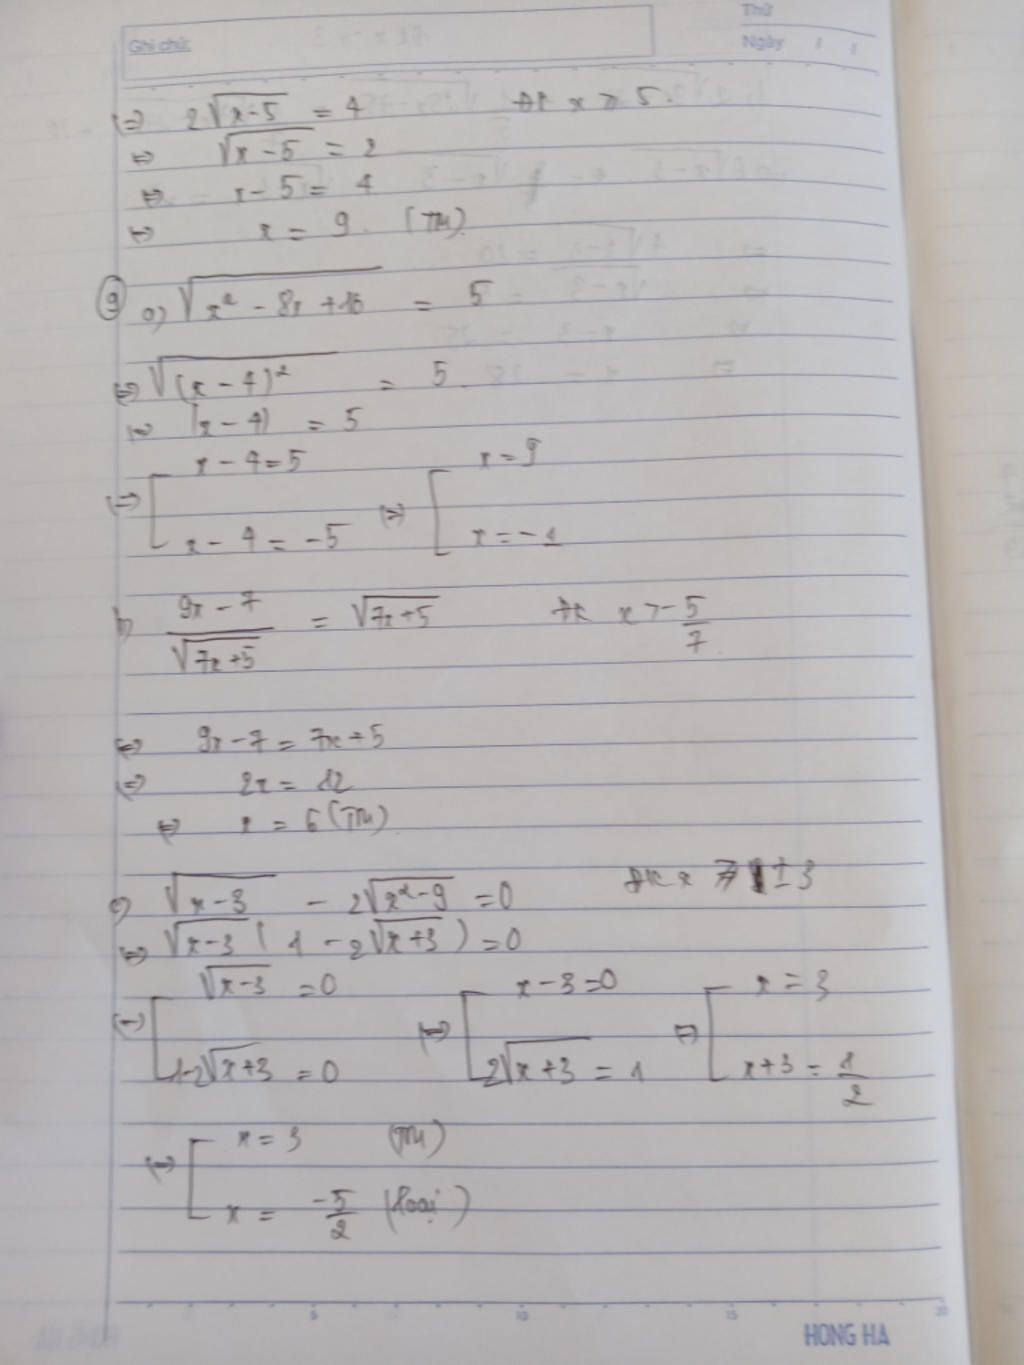 Ghi chú:
Thứ
Ngày / /
⇔ 2√(x-5) = 4 ĐK x ≥ 5.
⇔ √(x-5) = 2
⇔ x-5 = 4
⇔ x = 9. (TM)
⑨ a) √(x² - 8x + 16) = 5
⇔ √((x-4)²) = 5.
⇔ |x-4| = 5
⇔ [ x-4=5
x-4=-5 ⇔ [ x=9
x=-1
b) (9x-7)/√(7x+5) = √(7x+5) ĐK x > -5/7
⇔ 9x-7 = 7x+5
⇔ 2x = 12
⇔ x = 6 (TM)
c) √(x-3) - 2√(x²-9) = 0 ĐK x ≥ ±3
⇔ √(x-3) ( 1 - 2√(x+3) ) = 0
⇔ [ √(x-3) = 0
1-2√(x+3) = 0 ⇔ [ x-3=0
2√(x+3) = 1 ⇔ [ x = 3
x+3 = 1/2
⇔ [ x = 3 (TM)
x = -5/2 (loại)
5 10 15 20
HONG HA